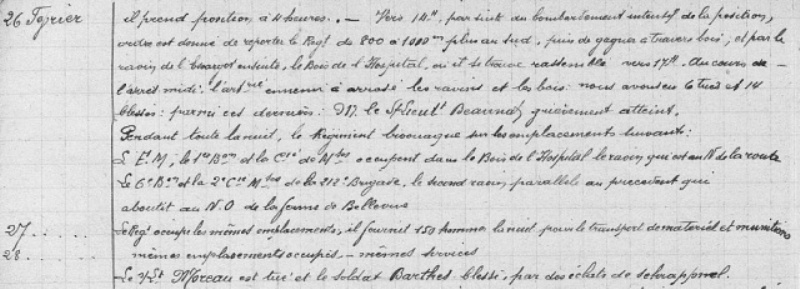 26 Février il prend position à 4 heures. . – Vers 14h, par suite du bombardement intensif de la position,
ordre est donné de reporter le Régt de 800 à 1000m plus au sud, puis de gagner à travers bois, et par le
ravin de l'Escargot ensuite, le Bois de l'Hospital, où il se trouve rassemblé vers 17h. Au cours de
l'après midi, l'artrie ennemie a arrosé les ravins et les bois : nous avons eu 6 tués et 14
blessés : parmi ces derniers : M. le S/Lieutt grièvement atteint.
Pendant toute la nuit, le Régiment bivouaque sur les emplacements suivants :
L'E.M, le 1er Bon et la Cie de Mses occupent dans le Bois de l'Hospital le ravin qui est au N de la route
Le 6e Bon et la 2e Cie Mses de la 212e Brigade, le second ravin parallèle au précédent qui
aboutit au N.O de la ferme de Bellevue
27 . . . . . Le Régt occupe les mêmes emplacements, il fournit 150 hommes la nuit pour le transport de matériel et munitions
28 . . . . . mêmes emplacements occupés – mêmes services
Le S/Lt Moreau est tué et le soldat Barthes blessé, par des éclats de schrappnel.